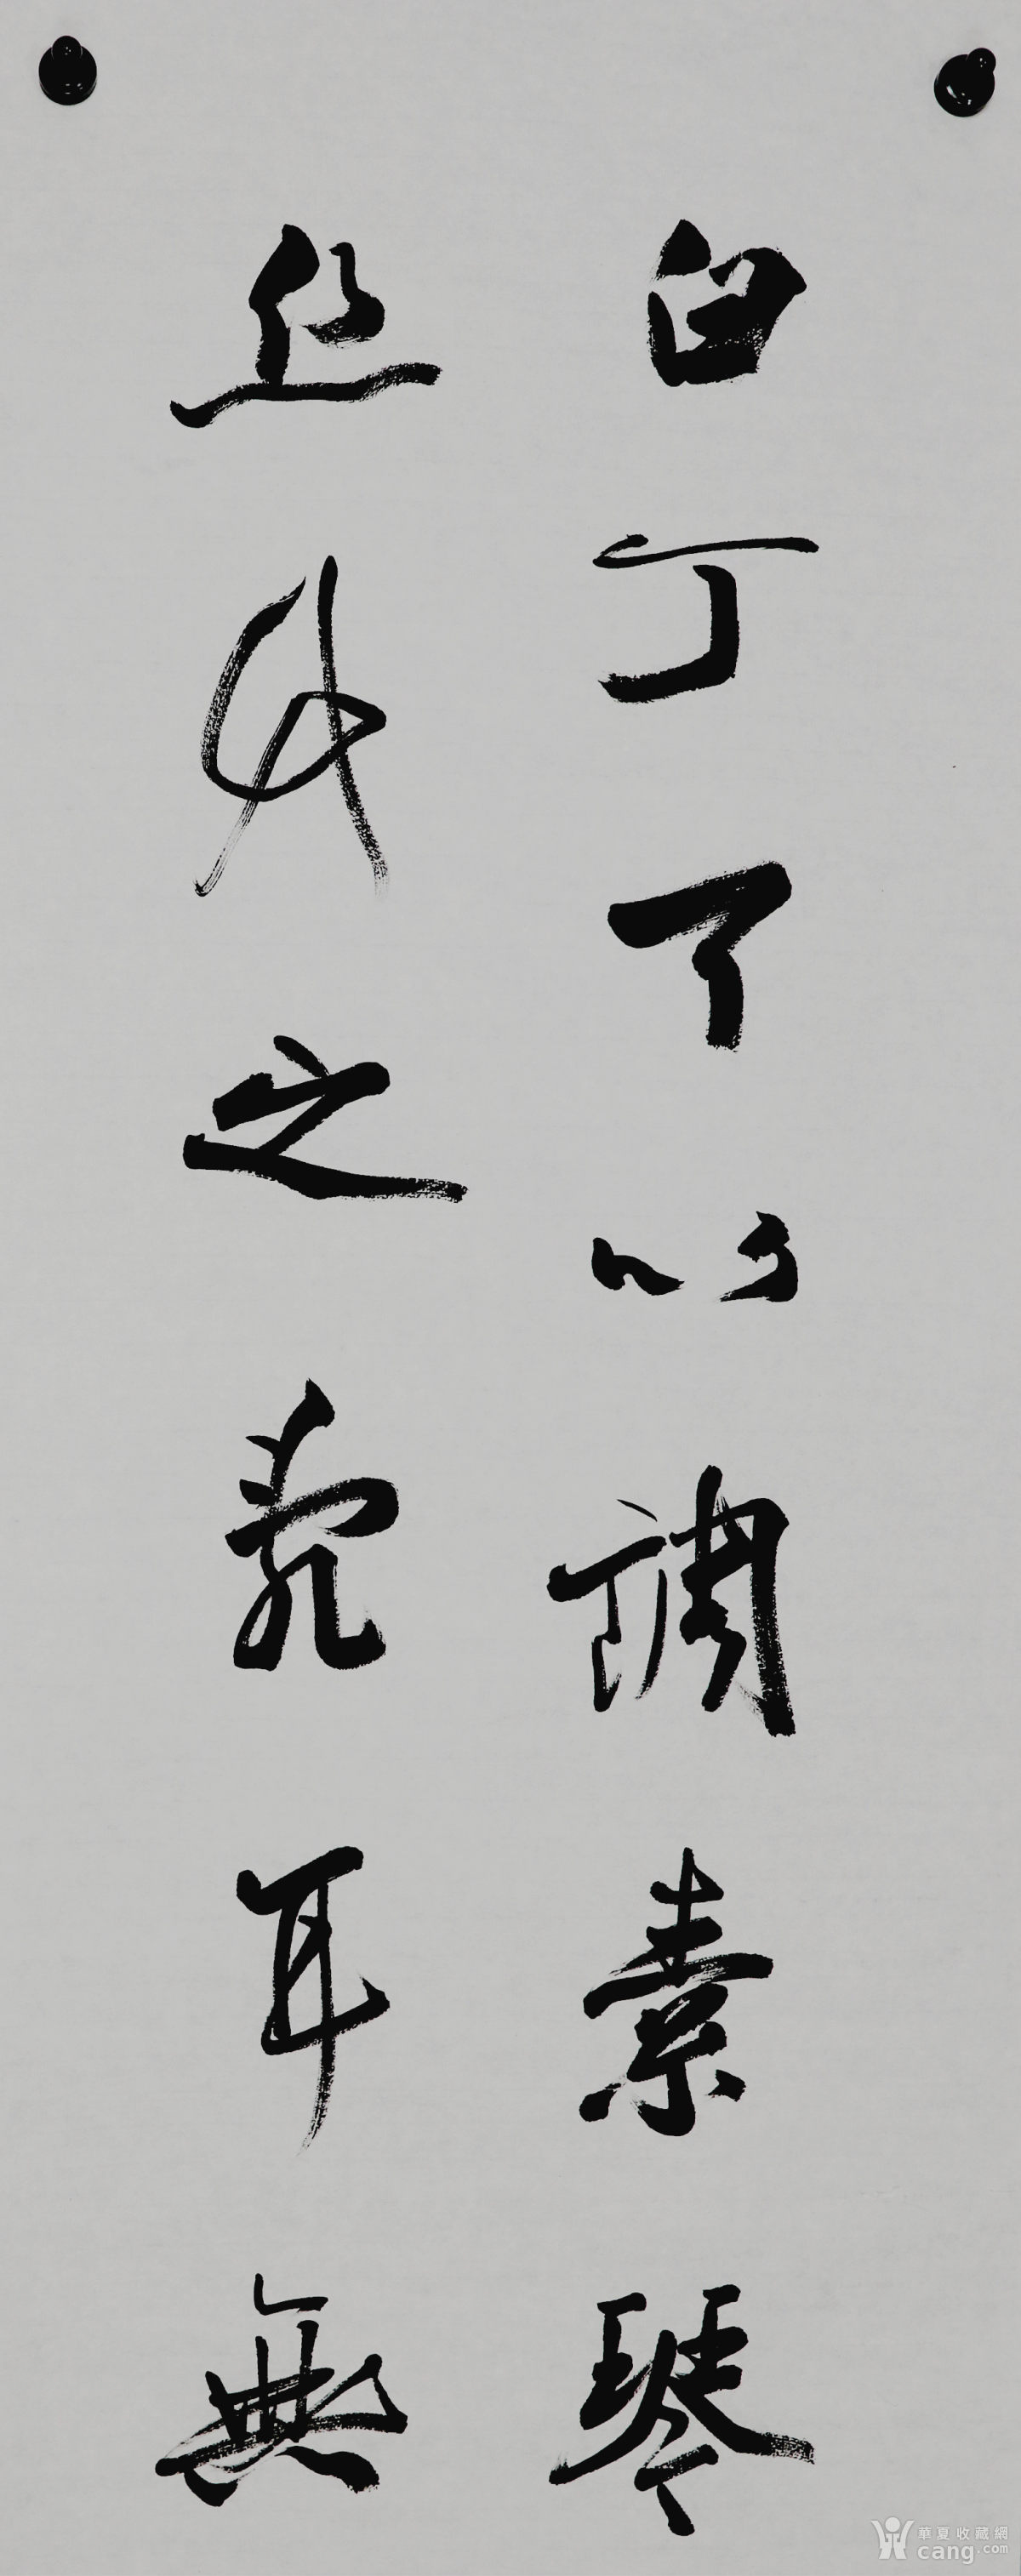 白丁可以調素琴
丝竹之乱耳無
華夏收藏網
cang.com